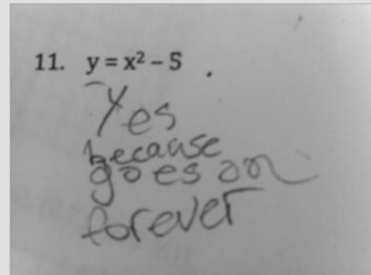 11. y = x² – 5 .
Yes
because
goes on
forever